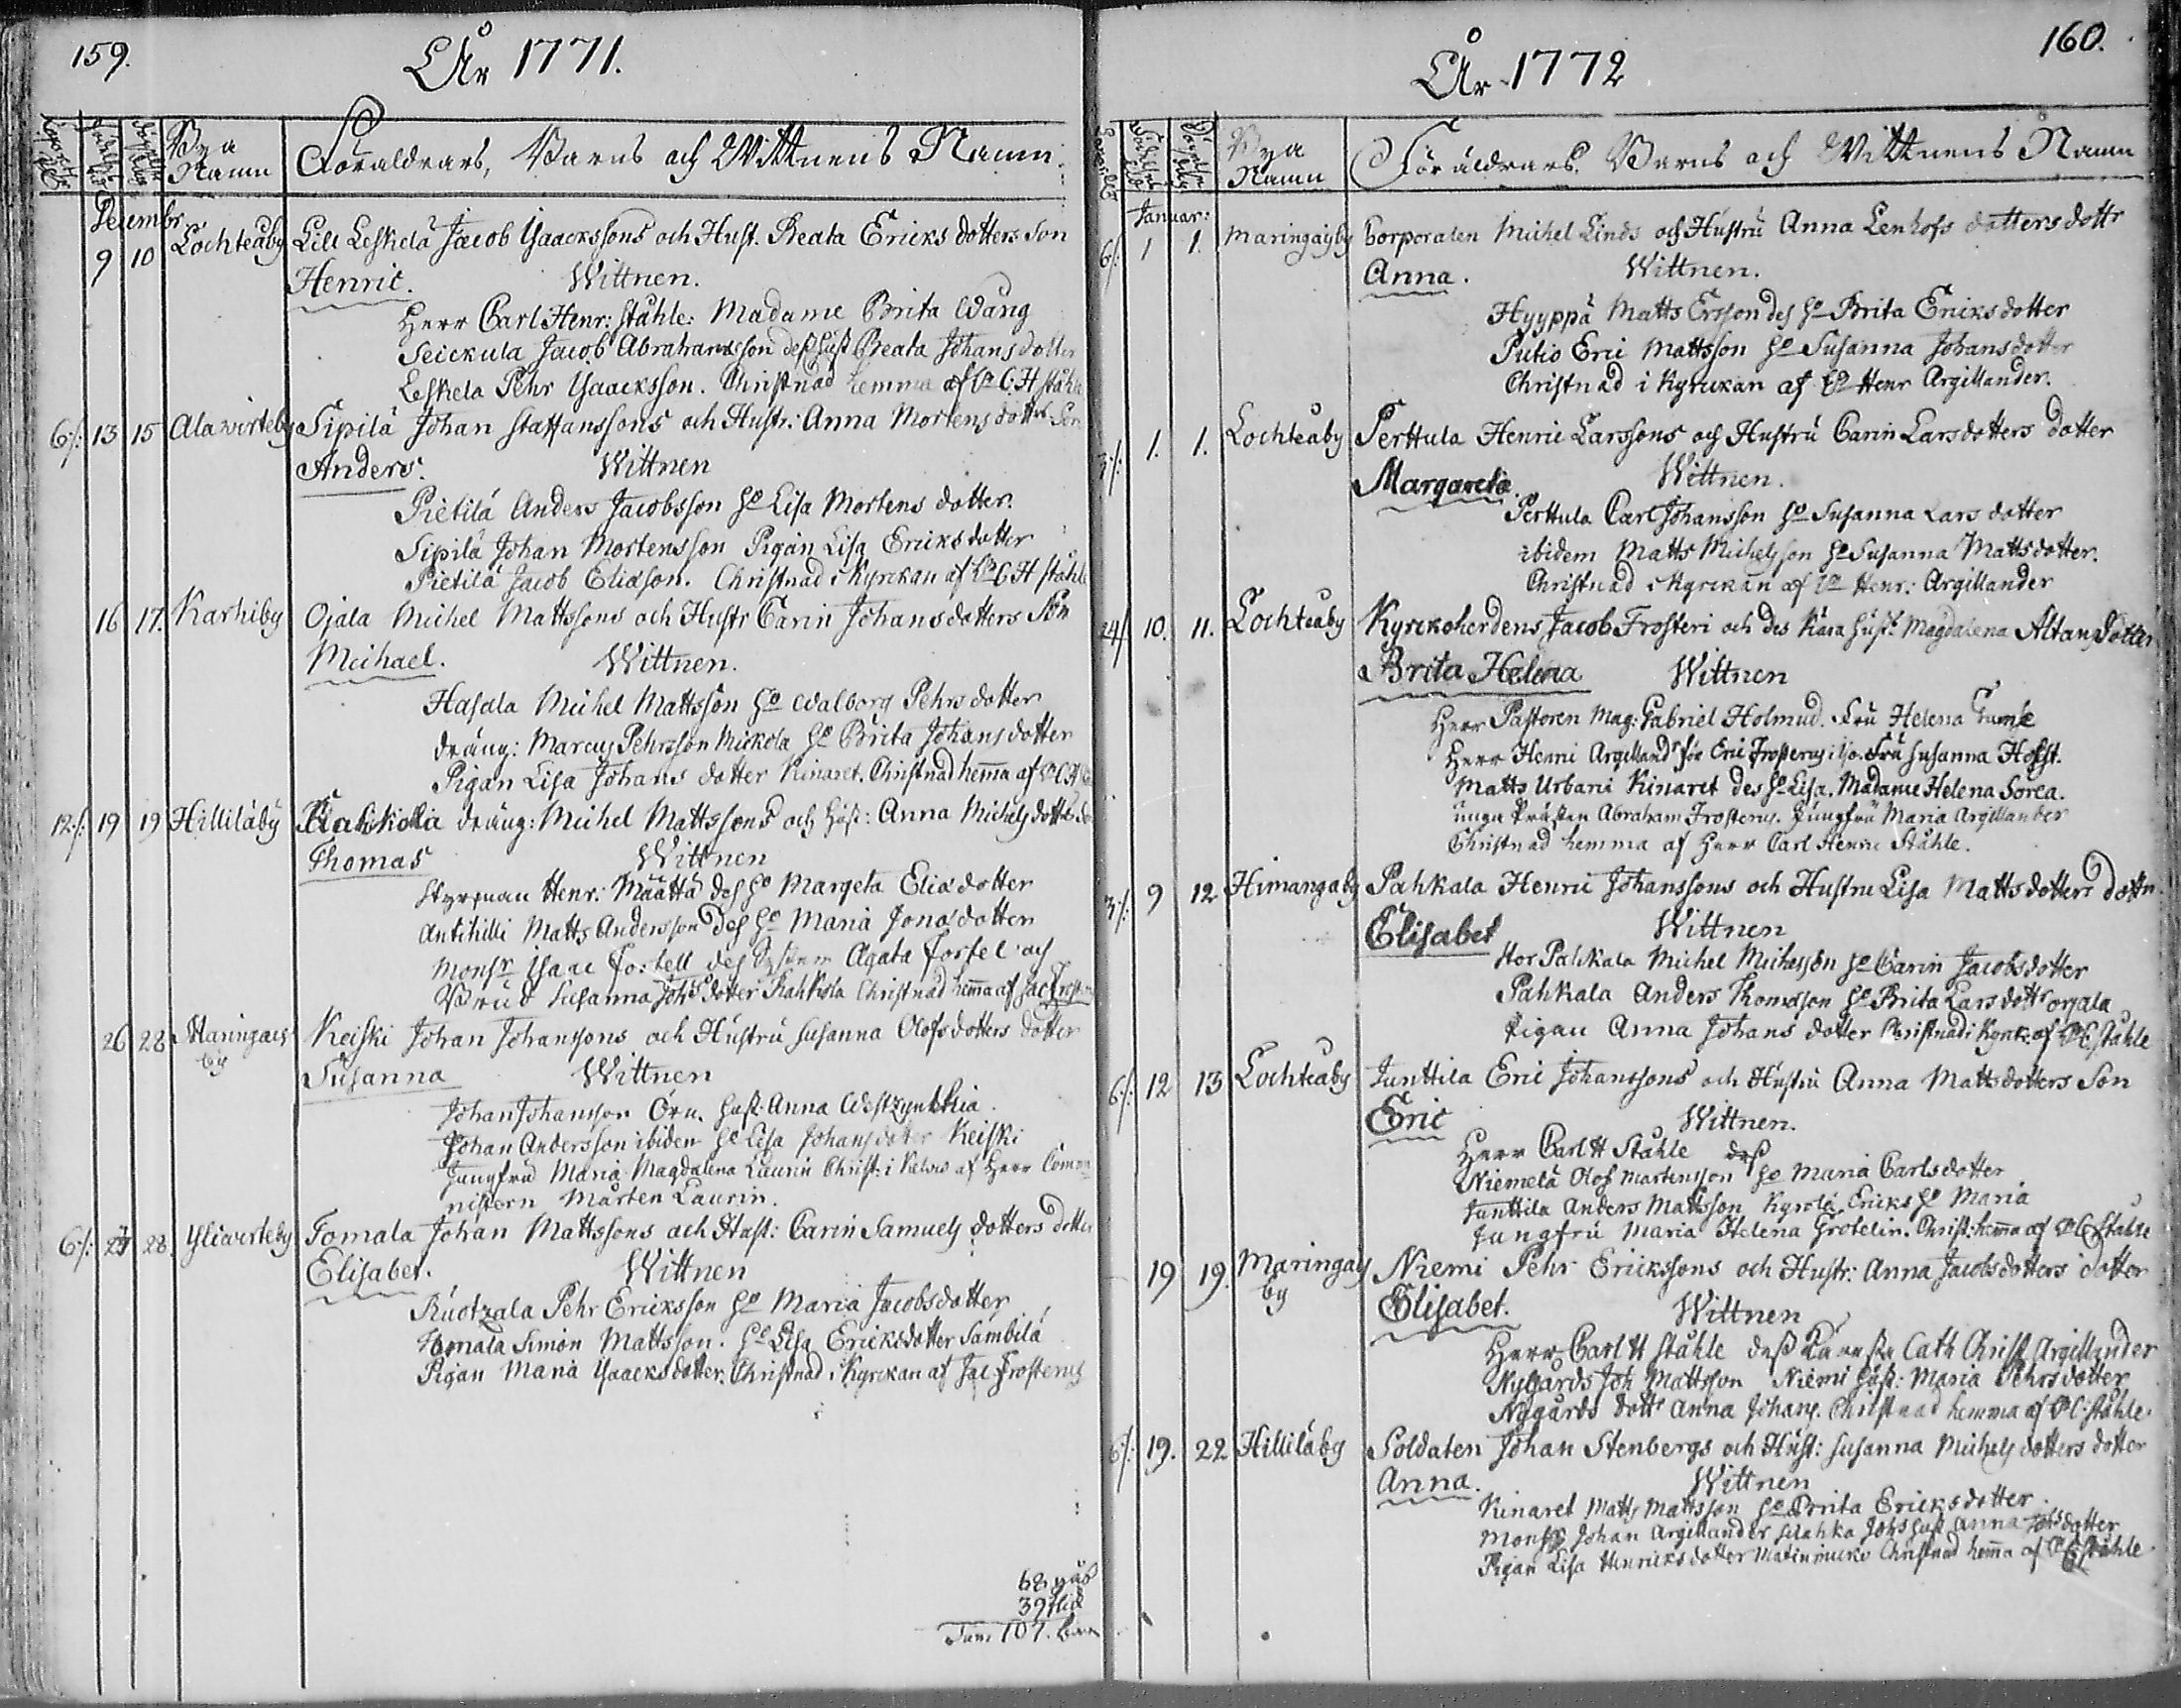 159.
År 1771.
Bya Namn
Föräldrars, Barns och Wittnens Namn.
Decembr
9 10 Lochteåby Lill Leskelä Jacob Ysaackssons och Hust. Beata Ericks dotters Son
Henric. Wittnen.
Herr Carl Henr: Ståhle. Madame Brita Wang
Seickula Jacob Abrahamsson dess hust Beata Johans dotter
Leskela Pehr Ysaacksson. Christnad hemma af C: H Ståhle
6/: 13 15 Alawirteby Sipilä Johan Staffanssons och Hustr: Anna Mortens dotters Son
Anders. Wittnen
Pietilä Anders Jacobsson Ho Lisa Mortens dotter.
Sipilä Johan Mortensson Pigan Lisa Ericks dotter
Pietilä Jacob Eliasson. Christnad i Kyrckan af C H Ståhle
16 17. Karhiby Ojala Michel Mattssons och Hustr Carin Johans dotters Son
Michael. Wittnen.
Hasala Michel Mattsson Ho Walborg Pehrs dotter
dräng: Marcus Pehrsson Mickola Ho Brita Johans dotter
Pigan Lisa Johans dotter Kinaret. Christnad hemma af C H
12/: 19 19 Hilliläby Kahikola dräng: Michel Mattssons och Hust: Anna Michels dotters
Thomas Wittnen
Styrman Henr: Määttä des Ho Margeta Elias dotter
Antihilli Matts Andersson Des Ho Maria Jonas dotter
Monsr Ysaac Forsell des Syster Agata Forsel och
Brud Susanna Johs dotter Kahikola Christnad hemma af Jac Frost
26 28 Maringais by Keiski Johan Johanssons och Hustru Susanna Olofs dotters dotter
Susanna Wittnen
Johan Johansson Örn. Hust: Anna Westzynthia
Johan Andersson ibidem Ho Lisa Johans dotter Keiski
Jungfru Maria Magdalena Laurin Christ: i Kelwio af Herr Commi
nistern Mårten Laurin.
6/: 27 28. Yliwirteby Tomala Johan Mattssons och Hust: Carin Samuels dotters dotter
Elisabet. Wittnen
Ruotzala Pehr Ericksson Ho Maria Jacobs dotter
Tomala Simon Mattsson. Ho Lisa Ericks dotter Sambilä
Pigan Maria Ysaacks dotter. Christnad i Kyrckan af Jac Frosterus
68
39
Sum 107.
160.
År 1772
Bya Namn
Föräldrars, Barns och Wittnens Namn
Januar:
6/: 1 1. Maringaisby Corporalen Michel Linds och Hustru Anna Lenhofs dotters dottr
Anna. Wittnen.
Hyyppä Matts Ersson des Ho Brita Ericks dotter
Putio Eric Mattsson Ho Susanna Johans dotter
Christnad i Kyrckan af Henr Argillander.
3/: 1. 1. Lochteåby Perttula Henric Larssons och Hustru Carin Lars dotters dotter
Margareta. Wittnen.
Perttula Carl Johansson Ho Susanna Lars dotter
ibidem Matts Michelsson Ho Susanna Matts dotter.
Christnad i Kyrckan af Henr: Argillander
24/ 10. 11. Lochteåby Kyrckoherdens Jacob Frosteri och des Kära Hust: Magdalena Altans dotter
Brita Helena Wittnen
Herr Pastoren Mag: Gabriel Holmud. Fru Helena
Herr Henric Argilland Eric Frosterus Fru Susanna Hofst.
Matts Urbani Kinaret des Ho Lisa, Madame Helena Sorea.
unga Prästen Abraham Frosterus. Jungfru Maria Argillander
Christnad hemma af Herr Carl Henric Ståhle.
3/: 9 12 Himangaby Pahkala Henric Johanssons och Hustru Lisa Matts dotters dottr.
Elisabet Wittnen
Hos Pahkala Michel Michelsson Ho Carin Jacobs dotter
Pahkala Anders Thomasson Ho Brita Lars dottr orjala
Pigan Anna Johans dotter Christnad i Kyrk: af C Ståhle
6/: 12 13 Lochteåby Junttila Eric Johanssons och Hustru Anna Matts dotters Son
Eric Wittnen.
Herr Carl H Ståhle dess
Niemelä Olof Martensson Ho Maria Carls dotter
Junttila Anders Mattsson Kyrölä Ericks Ho Maria
Jungfru Maria Helena Grotelin. Christ: hemma af C Ståhle
19 19. Maringais by Niemi Pehr Erickssons och Hustr: Anna Jacobs dotters dotter
Elisabet. Wittnen
Herr Carl H Ståhle dess Käresta Cath Christ Argillander
Nygårds Joh Mattsson Niemi Hust: Maria Pehrs dotter
Nygårds dottr Anna Johans. Christnad hemma af C: Ståhle.
6/: 19. 22 Hilliläby Soldaten Johan Stenbergs och Hust: Susanna Michels dotters dotter
Anna. Wittnen
Kinaret Matts Mattsson Ho Brita Ericks dotter.
Monsr Johan Argillander Johs hust Anna Johs dotter
Pigan Lisa Henricks dotter Christnad hemma af C Ståhle.